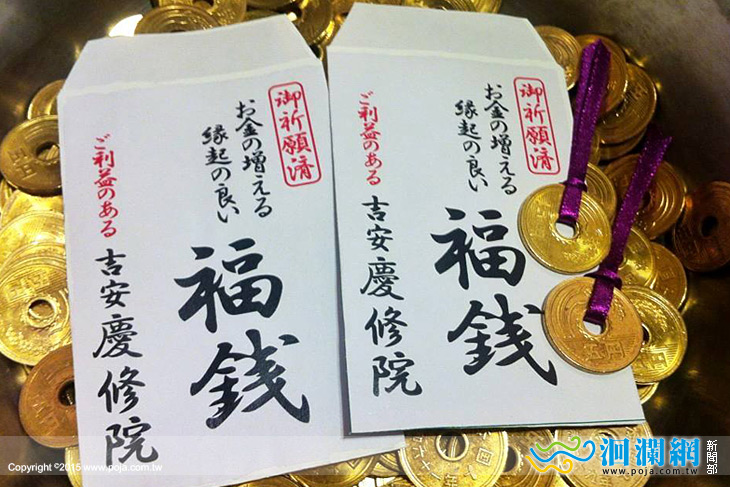 御祈願済
お金の増える
縁起の良い
福銭
ご利益のある
吉安慶修院
御祈願済
お金の増える
縁起の良い
福銭
ご利益のある
吉安慶修院
五円
Copyright ©2015 www.poja.com.tw
洄瀾網
www.poja.com.tw
新聞部